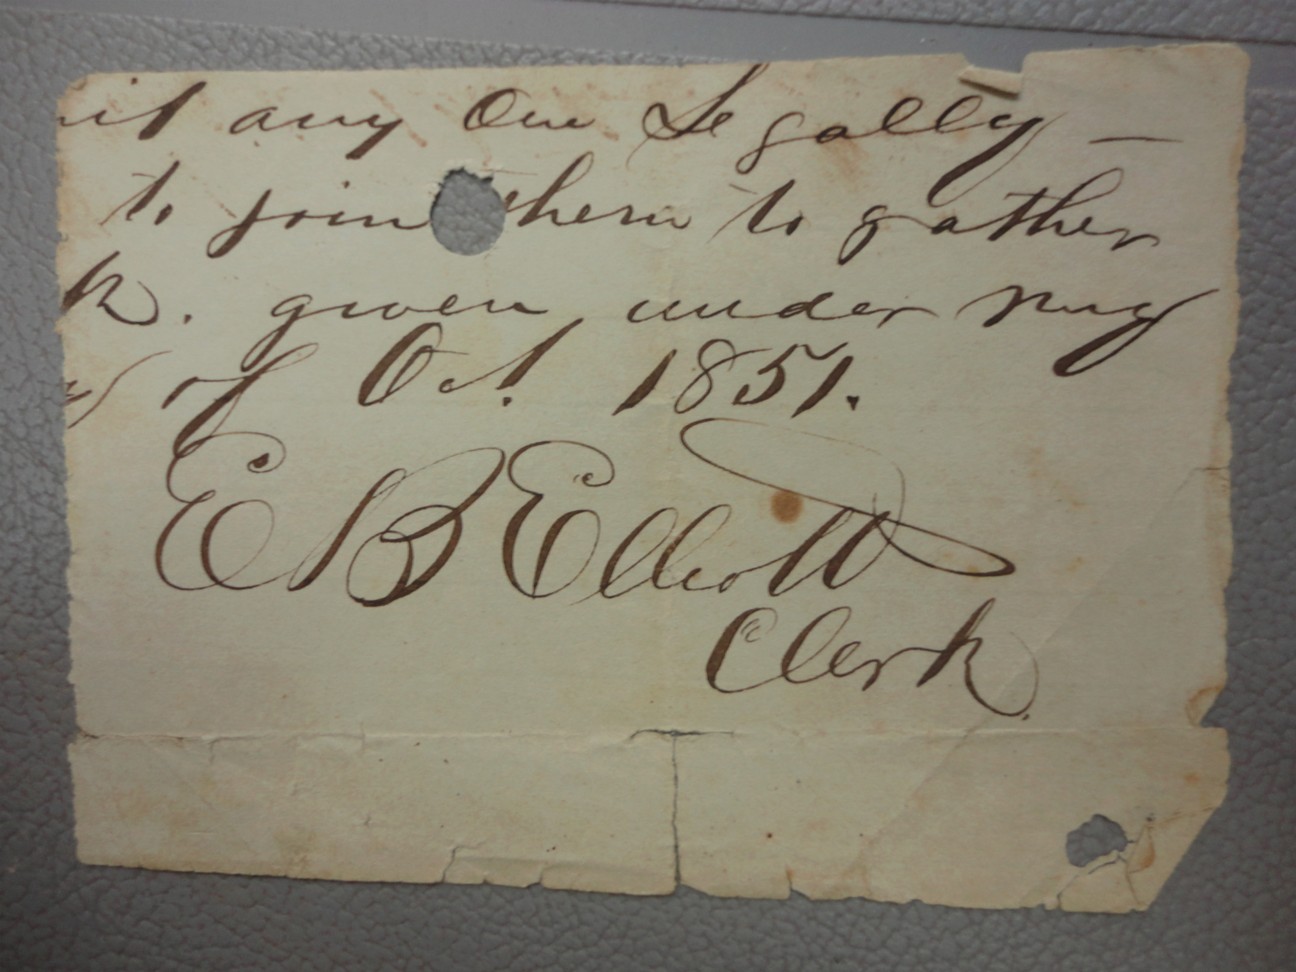 any One Legally —
to join them to gather
k. given under my
of Oct 1851.
E B Elliott
Clerk.